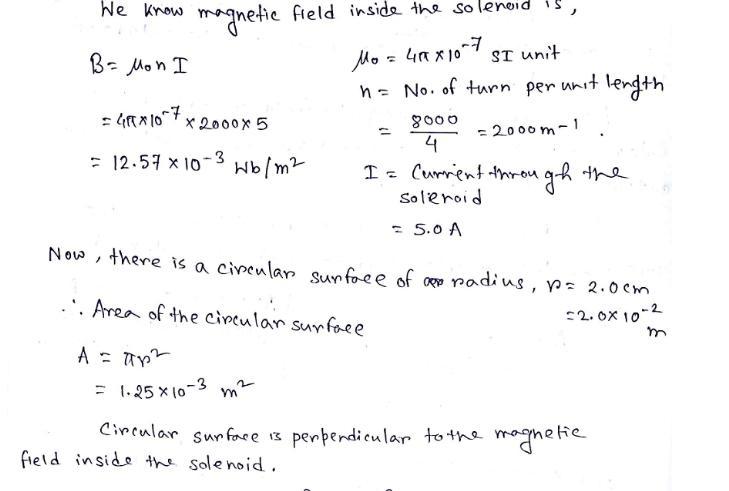 We know magnetic field inside the solenoid is,
B = μ₀ n I
= 4π×10⁻⁷ × 2000 × 5
= 12.57 × 10⁻³ Wb/m²
μ₀ = 4π × 10⁻⁷ SI unit
n = No. of turn per unit length
= 8000/4 = 2000 m⁻¹.
I = Current through the
solenoid
= 5.0 A
Now, there is a circular surface of radius, r = 2.0 cm
= 2.0 × 10⁻²
m
∴ Area of the circular surface
A = πr²
= 1.25 × 10⁻³ m²
Circular surface is perpendicular to the magnetic
field inside the solenoid.